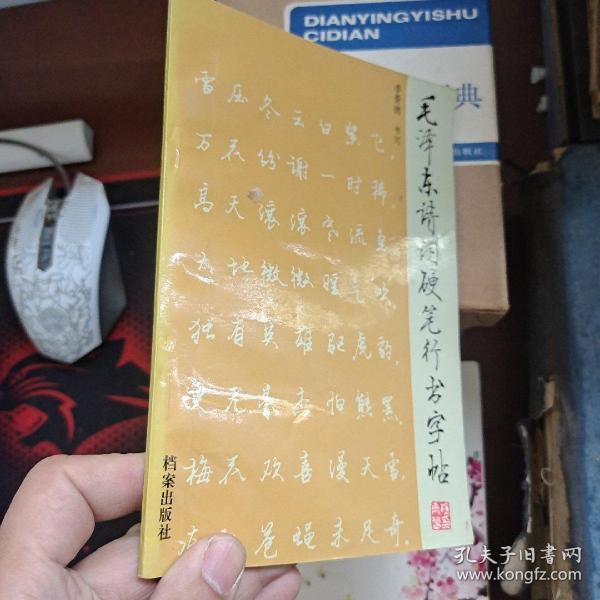 DIANYINGYISHU
CIDIAN
典
出版社
毛泽东诗词硬笔行书字帖
书写
雪压冬云白絮飞，
万花纷谢一时稀。
高天滚滚寒流急，
大地微微暖气吹。
独有英雄驱虎豹，
更无豪杰怕熊罴。
梅花欢喜漫天雪，
苍蝇未足奇。
档案出版社
孔夫子旧书网
www.kongfz.com